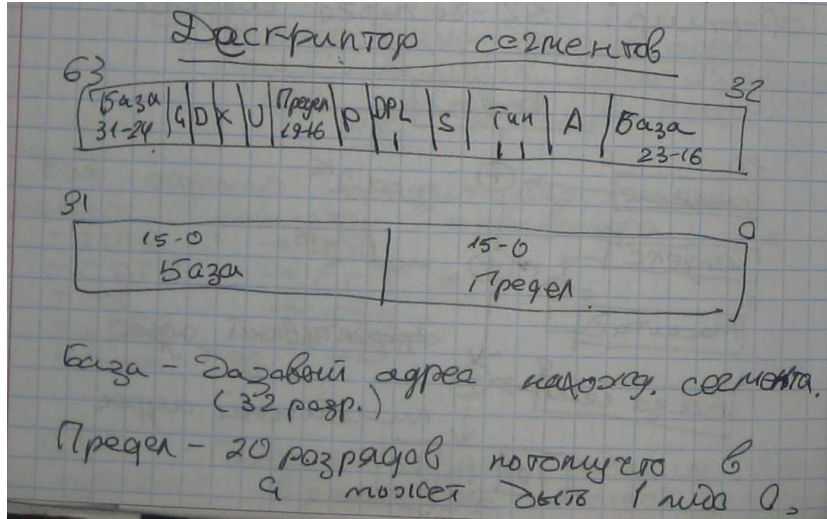 Дескриптор сегментов
63 32
База G D X U Предел P DPL S Тип A База
31-24 19-16 23-16
31 0
15-0 15-0
База Предел
База - базавый адреа находжд. сегмента.
(32 разр.)
Предел - 20 розрядов потомучто в
G может быть 1 либо 0,